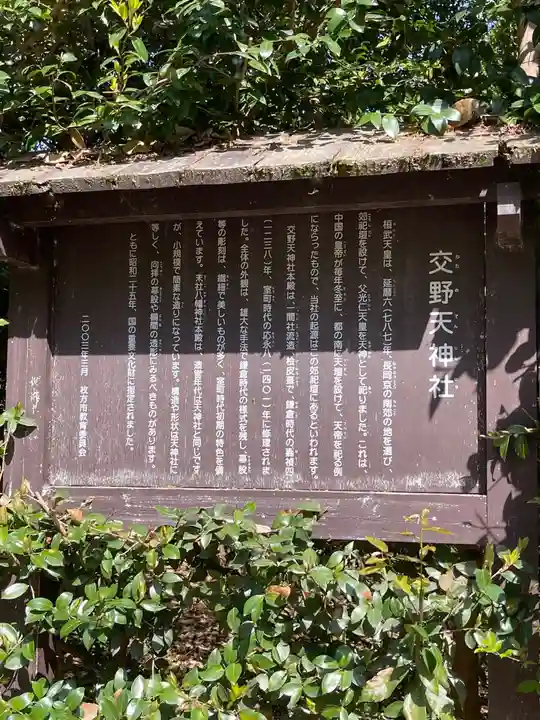 交野天神社
桓武天皇は、延暦六(七八七)年、長岡京の南郊の地を選び、
郊祀壇を設けて、父光仁天皇を天神として祀りました。これは、
中国の皇帝が毎年冬至に、都の南に天壇を設けて、天帝を祀る例
にならったもので、当社の起源はこの郊祀壇にあるといわれます。
交野天神社本殿は、一間社流造、桧皮葺で、鎌倉時代の嘉禎四
(一二三八)年、室町時代の応永八(一四〇一)年に修造されま
した。全体の外観は、雄大な手法で鎌倉時代の様式を残し、蟇股
等の彫刻は、繊細で美しいものが多く、室町時代初期の特色を備
えています。末社八幡神社本殿は、造営年代は天神社と同じです
が、小規模で簡素な造りになっています。構造や形状は天神社に
等しく、向拝の蟇股や欄間の透彫にみるべきものがあります。
ともに昭和二十五年、国の重要文化財に指定されました。
二〇〇三年三月 枚方市教育委員会